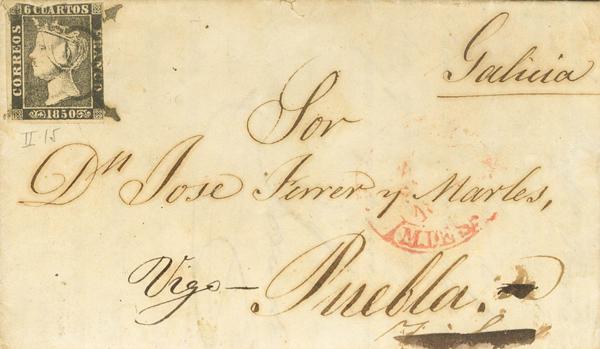 6 CUARTOS
CORREOS
FRANCO
1850
II-15
Galicia
Sor
Dn Jose Ferrer y Marles,
M.DE
Vigo— Puebla.